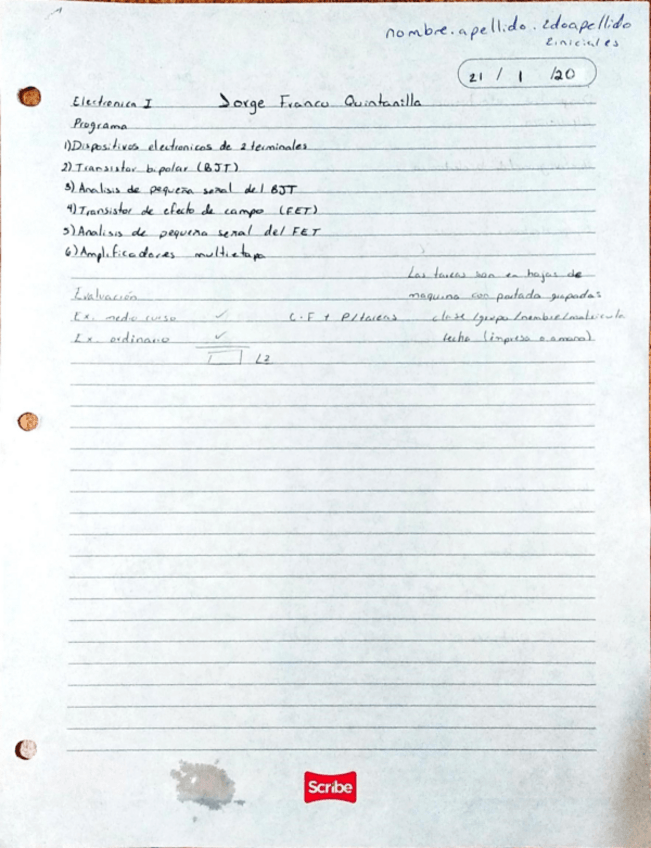 nombre.apellido.2doapellido
2iniciales
21 / 1 /20
Electronica I Jorge Franco Quintanilla
Programa
1) Dispositivos electronicos de 2 terminales
2) Transistor bipolar (BJT)
3) Analisis de pequeña señal del BJT
4) Transistor de efecto de campo (FET)
5) Analisis de pequeña señal del FET
6) Amplificadores multietapa
Las tareas son en hojas de
Evaluación maquina con portada grapadas
Ex. medio curso ✓ C.F + P/tareas clase/grupo/nombre/matricula
Ex. ordinario ✓ fecha (impreso o a mano)
L2
Scribe